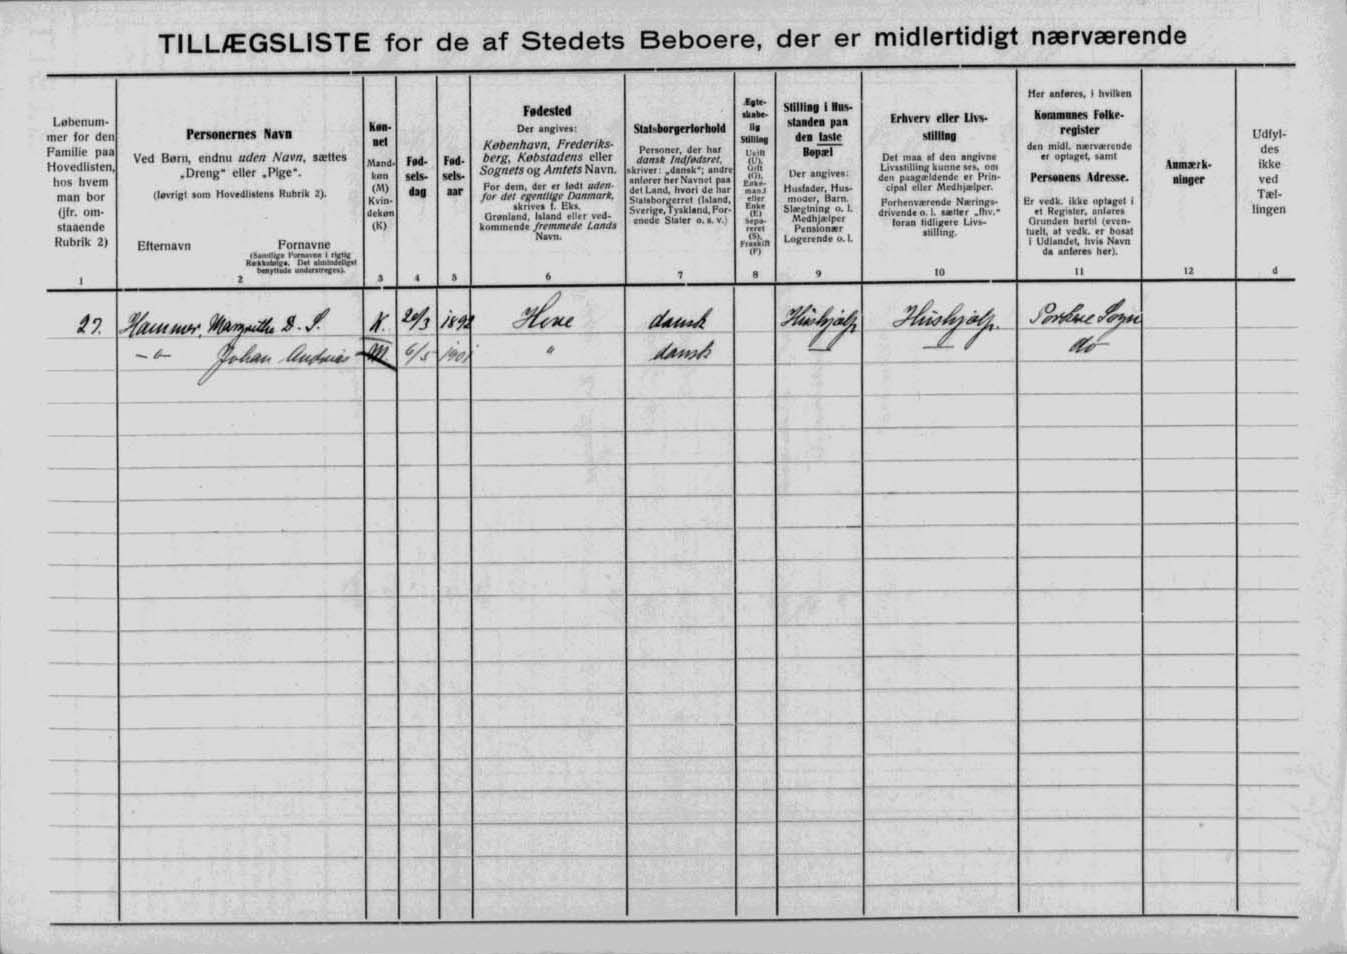 TILLÆGSLISTE for de af Stedets Beboere, der er midlertidigt nærværende
Løbenum-
mer for den
Familie paa
Hovedlisten,
hos hvem
man bor
(jfr. om-
staaende
Rubrik 2)
1
Personernes Navn
Ved Børn, endnu uden Navn, sættes
„Dreng“ eller „Pige“.
(løvrigt som Hovedlistens Rubrik 2).
Efternavn
Fornavne
(Samtlige Fornavne i rigtig
Rækkefølge. Det almindeligst
benyttede understreges).
2
Køn-
net
Mand-
køn
(M)
Kvin-
dekøn
(K)
3
Fød-
sels-
dag
4
Fød-
sels-
aar
5
Fødested
Der angives:
København, Frederiks-
berg, Købstadens eller
Sognets og Amtets Navn.
For dem, der er født uden-
for det egentlige Danmark,
skrives f. Eks.
Grønland, Island eller ved-
kommende fremmede Lands
Navn.
6
Statsborgerforhold
Personer, der har
dansk Indfødsret,
skriver: „dansk“; andre
anfører her Navnet paa
det Land, hvori de har
Statsborgerret (Island,
Sverige, Tyskland, For-
enede Stater o. s. v.)
7
Ægte-
skabe-
lig
Stilling
Ugift
(U),
Gift
(G),
Enke-
mand
eller
Enke
(E)
Sepa-
reret
(S),
Fraskilt
(F)
8
Stilling i Hus-
standen paa
den faste
Bopæl
Der angives:
Husfader, Hus-
moder, Barn.
Slægtning o. l.
Medhjælper
Pensionær
Logerende o. l.
9
Erhverv eller Livs-
stilling
Det maa af den angivne
Livsstilling kunne ses, om
den paagældende er Prin-
cipal eller Medhjælper.
Forhenværende Nærings-
drivende o. l. sætter „fhv.“
foran tidligere Livs-
stilling.
10
Her anføres, i hvilken
Kommunes Folke-
register
den midl. nærværende
er optaget, samt
Personens Adresse.
Er vedk. ikke optaget i
et Register, anføres
Grunden hertil (even-
tuelt, at vedk. er bosat
i Udlandet, hvis Navn
da anføres her).
11
Anmærk-
ninger
12
Udfyl-
des
ikke
ved
Tæl-
lingen
d
27. Hammer, Margrethe D. S. K. 20/3 1892 Hove dansk Hushjælp Hushjælp. Porkere Sogn
-"- Johan Andreas M 6/5 1901 " dansk — — do